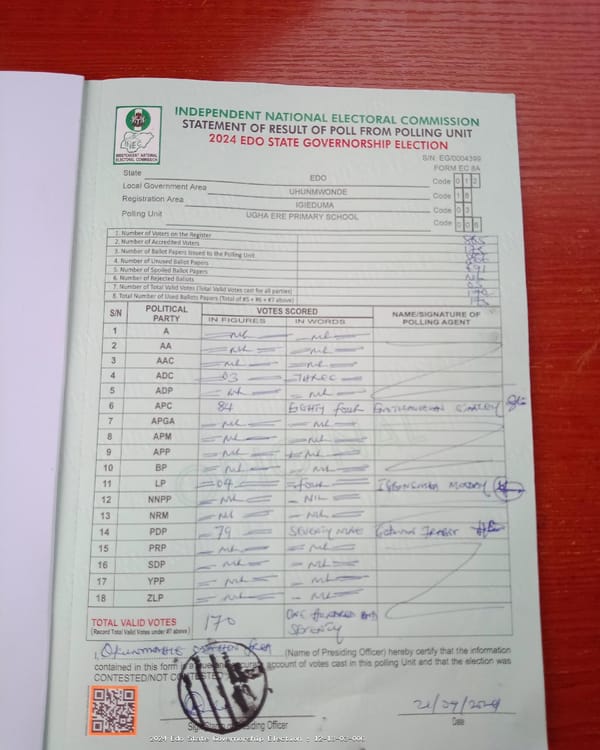 INDEPENDENT NATIONAL ELECTORAL COMMISSION
STATEMENT OF RESULT OF POLL FROM POLLING UNIT
2024 EDO STATE GOVERNORSHIP ELECTION
INDEPENDENT NATIONAL ELECTORAL COMMISSION
S/N: EG/0004399
FORM EC 8A
State EDO Code 0 1 2
Local Government Area UHUNMWONDE Code 1 8
Registration Area IGIEDUMA Code 0 3
Polling Unit UGHA ERE PRIMARY SCHOOL Code 0 0 6
1. Number of Voters on the Register
2. Number of Accredited Voters
3. Number of Ballot Papers Issued to the Polling Unit
4. Number of Unused Ballot Papers
5. Number of Spoiled Ballot Papers
6. Number of Rejected Ballots
7. Number of Total Valid Votes (Total Valid Votes cast for all parties)
8. Total Number of Used Ballots Papers (Total of #5 + #6 + #7 above)
S/N POLITICAL PARTY VOTES SCORED IN FIGURES IN WORDS NAME/SIGNATURE OF POLLING AGENT
1 A NIL NIL
2 AA NIL NIL
3 AAC NIL NIL
4 ADC 03 THREE
5 ADP NIL NIL
6 APC 84 EIGHTY FOUR
7 APGA NIL NIL
8 APM NIL NIL
9 APP NIL NIL
10 BP NIL NIL
11 LP 04 FOUR
12 NNPP NIL NIL
13 NRM NIL NIL
14 PDP 79 SEVENTY NINE
15 PRP NIL NIL
16 SDP NIL NIL
17 YPP NIL NIL
18 ZLP NIL NIL
TOTAL VALID VOTES 170 ONE HUNDRED AND SEVENTY
(Record Total Valid Votes under #7 above)
I, (Name of Presiding Officer) hereby certify that the information
contained in this form is a true and accurate account of votes cast in this polling Unit and that the election was
CONTESTED/NOT CONTESTED
21/09/2024
Signature of Presiding Officer Date
2024 Edo State Governorship Election - 12-18-03-006